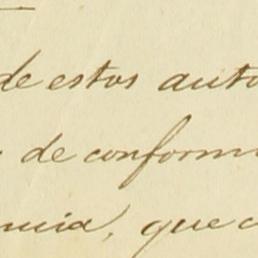 de estos auto
de conformi
ncia, que c